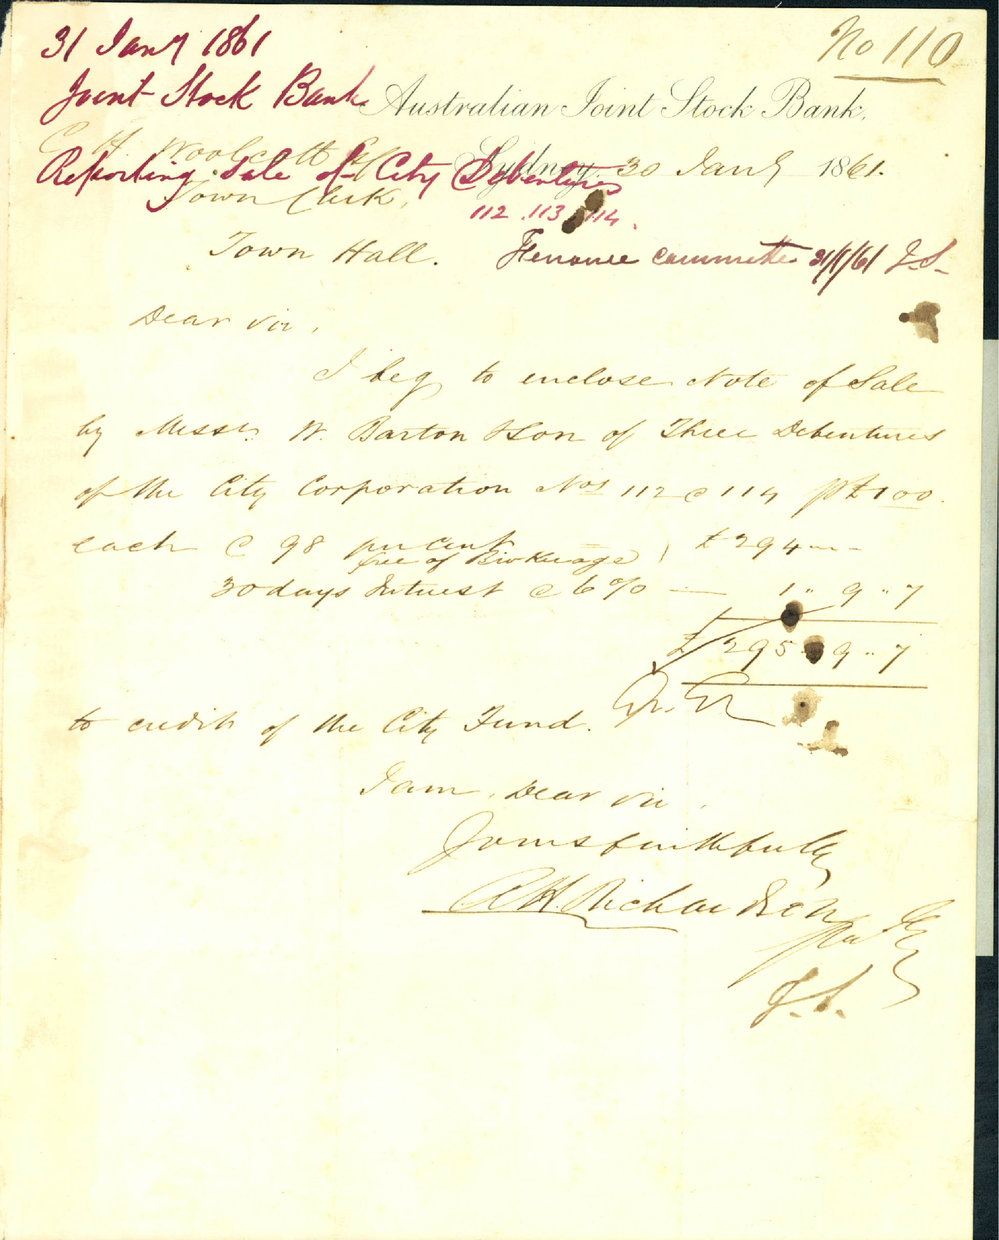 31 Jany 1861
No 110
Joint Stock Bank
Australian Joint Stock Bank,
C. H. Woolcott Esq
Sydney 30 Jany 1861.
Reporting Sale of City Debentures
Town Clerk,
112. 113. 114.
Town Hall.
Finance Committee 31/1/61 J.S.
Dear Sir,
I beg to enclose Note of Sale
by Messrs W. Barton & Son of Three Debentures
of the City Corporation Nos 112 @ 114 £100.
each @ 98 per cent £294 " - " -
free of Brokerage
30 days Interest @ 6% — 1 " 9 " 7
£295 " 9 " 7
to credit of the City Fund.
I am, Dear Sir,
Yours faithfully
A H. Richardson
J.S.